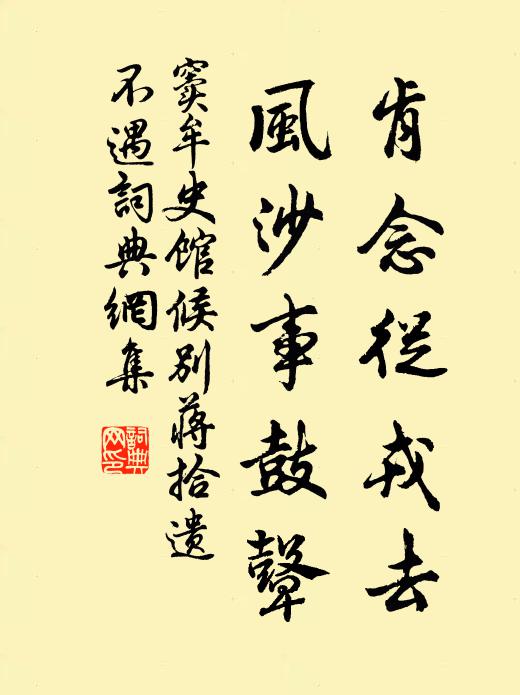 肯念從戎去
風沙事鼓鼙
竇牟史館候別蔣拾遺
不遇詞典網集
詞典
网印